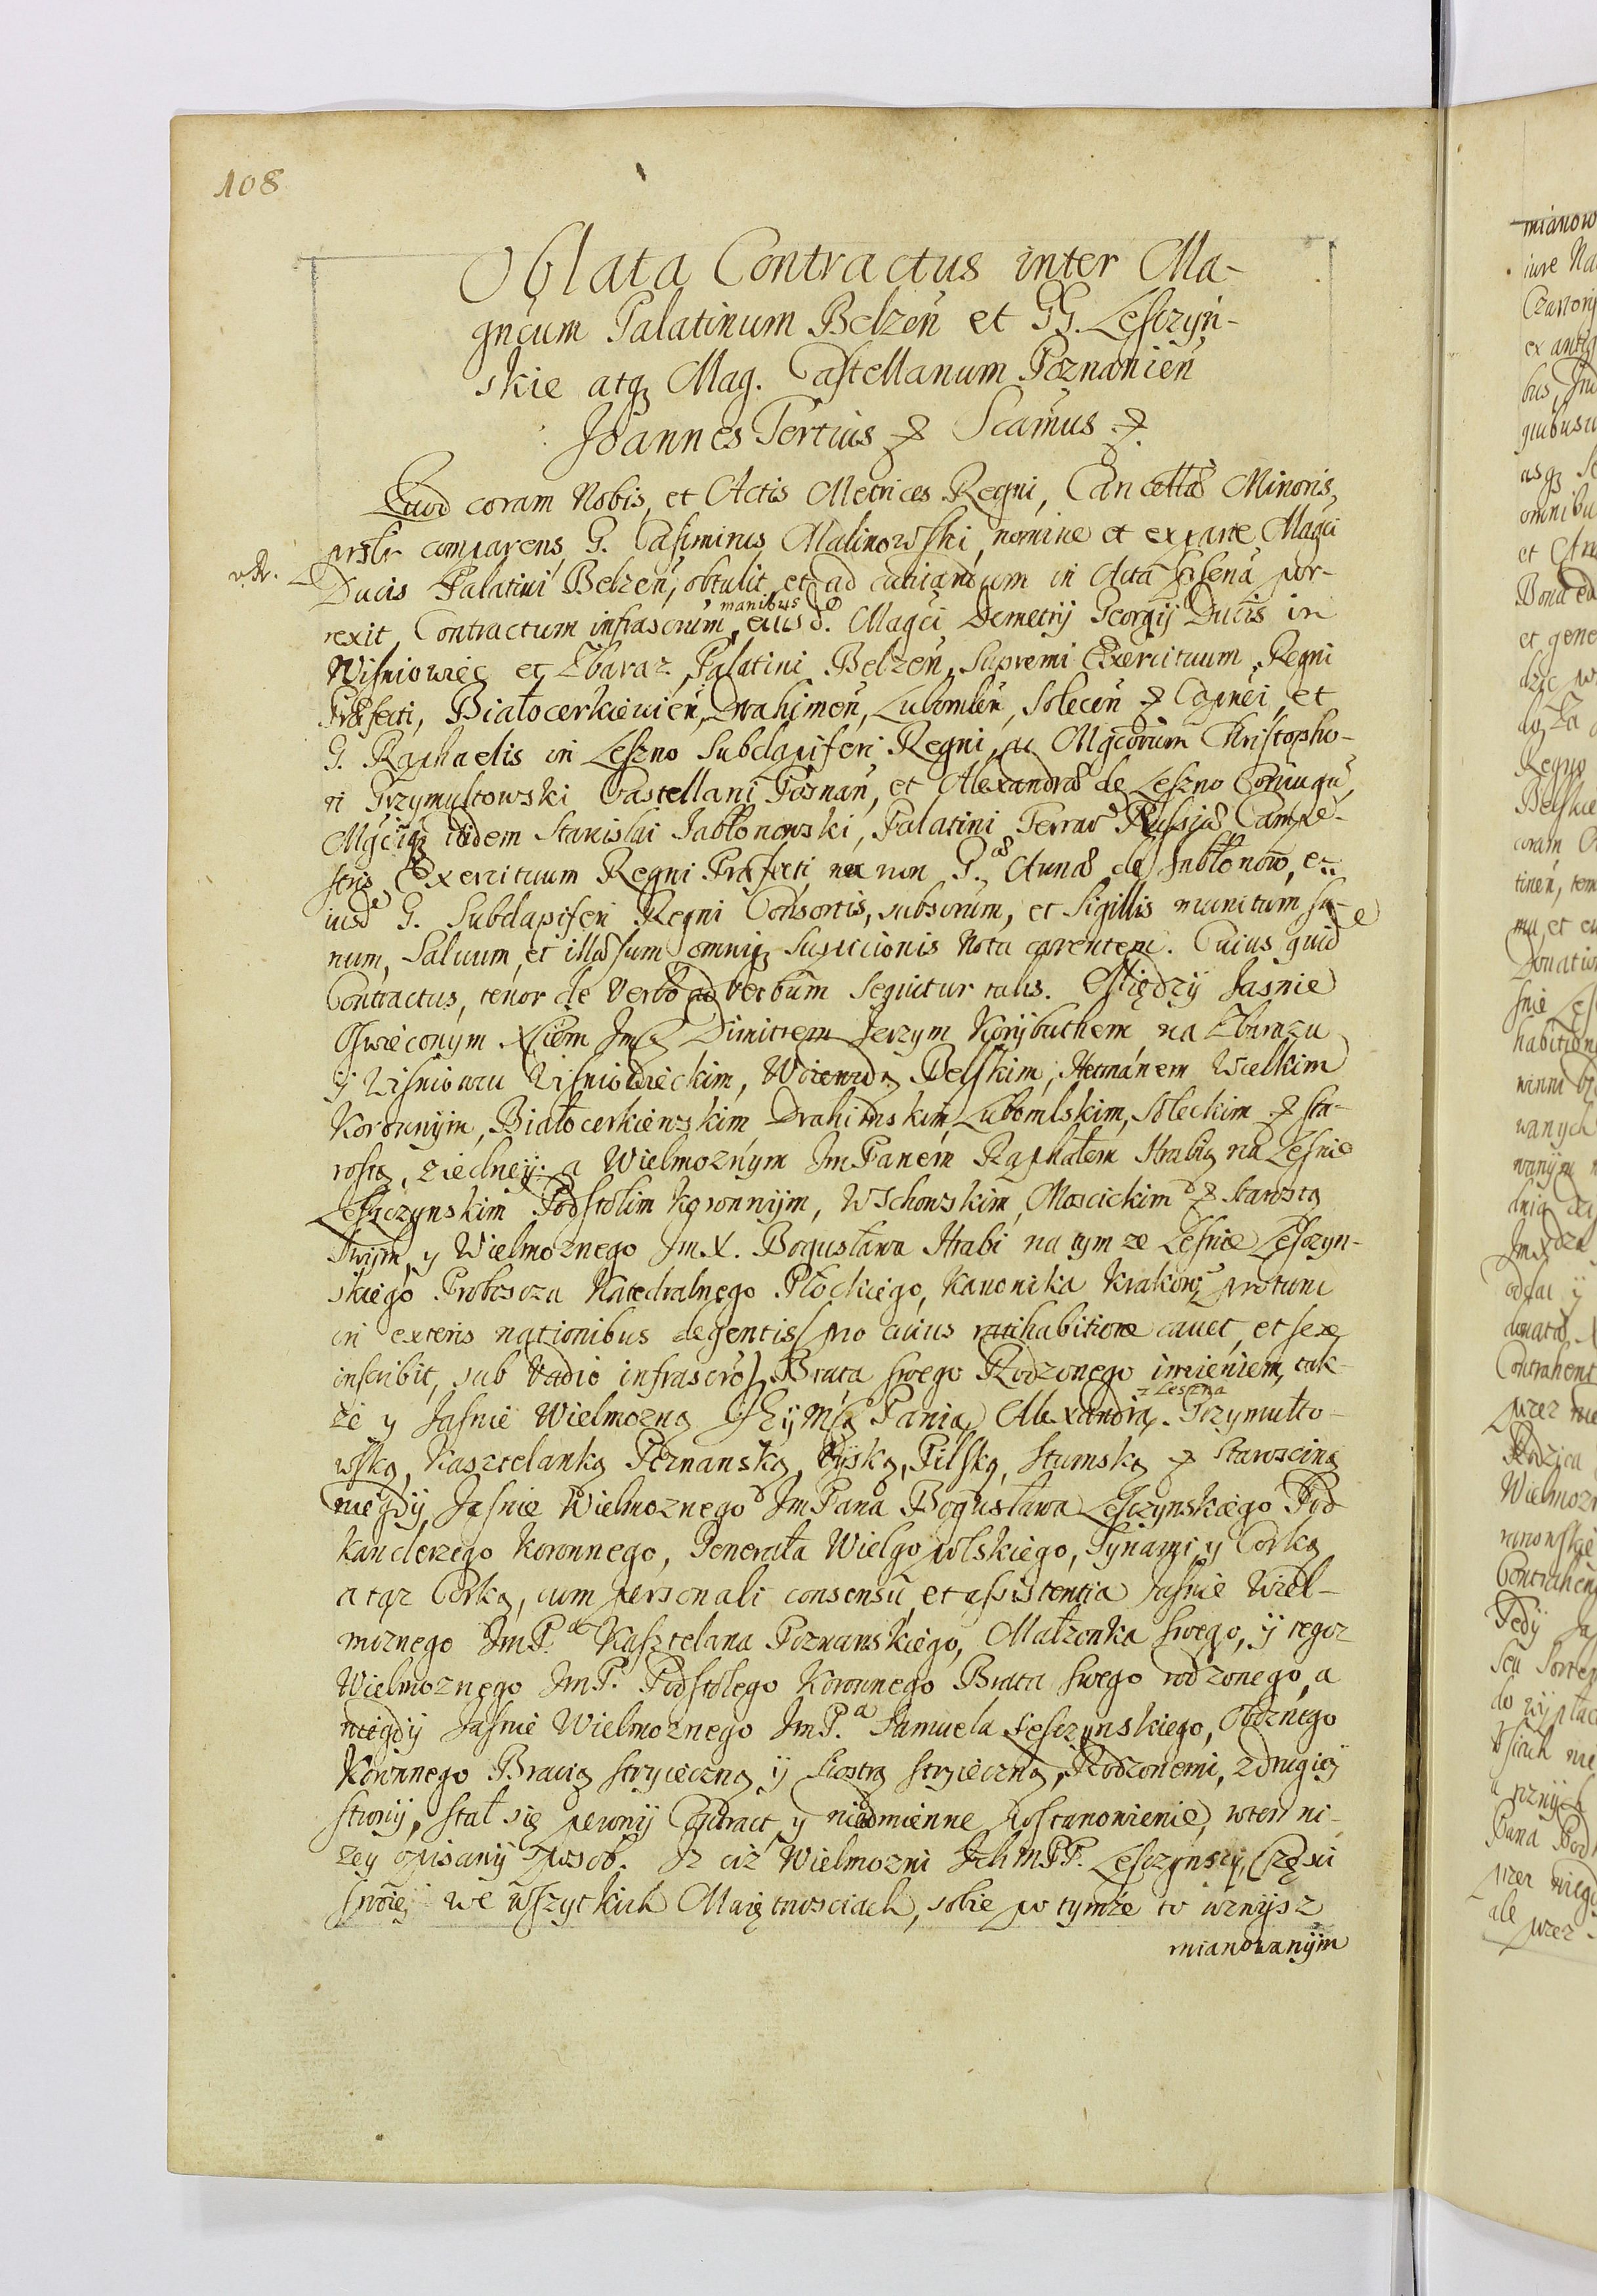 108
Oblata Contractus inter Ma-
gncum Palatinum Belzen̄ et GG. Lesczyń-
skie atq₃ Mag. Castellanum Poznanien̄
Joannes Tertius &c Scamus &c.
Quod coram Nobis, et Actis Metrices Regni, Cancellæ Minoris,
prsblr comparens G. Casimirus Malinowski, nomine et ex parte Magci
Ducis Palatini Belzen̄, obtulit et ad acticandum in Acta p̄sena por-
rexit, Contractum infrascrum, manibus eiusd. Magci Demetrij Georgij Ducis in
Wisniowiec et Zbaraz Palatini Belzen̄, Supremi Exercituum Regni
Præfecti, Białocerkievien̄, Drahimen̄, Lubomlen̄, Solecen̄ &c Capnei, et
G. Raphaelis in Leszno Subdapiferi Regni, ac Mgcorum Christopho-
ri Przymustowski Castellani Posnan̄, et Alexandræ de Leszno Coniugū,
Mgciq₃ itidem Stanislai Jabłonowski, Palatini Terrar̄ Russiæ Campe-
stris Exercituum Regni Præfecti, nec non G.æ Annæ de Jabłonow, e-
iusd G. Subdapiferi Regni Consortis, subscrum, et Sigillis munitum sa-
num, Saluum, et illæsum omniq₃ Suspicionis Nota carentem. Cuius quid
Contractus, tenor de Verbo ad verbum sequitur talis. Między Jasnie
Oswieconym Xciem Jmcą Dimitrem Jerzym Korybuthem, na Zbarazu
ij Wisniowcu Wisniowieckim, Woiewodą Bełskim, Hetmánem Wielkim
Koronnym, Białocerkiewskim Drahimskim, Lubomlskim, Soleckim &c sta-
rostą, ziedney: a Wielmoznym JmPanem Raphałem Hrabią na Lesnie
Leszczynskim Podstolim Koronnym, Wschowskim, Moscickim &c Starostą
Swym, y Wielmoznego Jm X. Bogusława Hrabi na tym ze Lesnie Lesczyn-
skiego Proboscza Katedralnego Płockiego, Kanonika Krakowᵍ protunc
in exteris nationibus degentis (pro cuius ratihabitione cauet, et sese
inscribit, sub vadio infrascro) Brata swego Rodzonego imieniem, tak-
że y Jasnie Wielmozną Jey Mcią Panią Alexandrą z Leszna Przymuło-
wską, Kasztelanką Poznanską, Ryską, Pilską, Stumską &c Staroscing
niegdy Jasnie Wielmoznego JmPana Bogusława Lesczynskiego Pod
kanclerzego Koronnego, Generała Wielgo polskiego, Synami y Corką
a taz Corką, cum personali consensu, et assistentia Jasnie Wiel-
moznego JmP.ᵃ Kasztelana Poznanskiego, Małzonka swego, ij tegoz
Wielmoznego JmP. Podstolego Koronnego Brata swego rodzonego, a
niegdy Jasnie Wielmoznego JmP.ᵃ Samuela Lesczynskiego, Oboznego
Koronnego Bracią stryieczną ij Siostrą stryieczną, Rodzonemi, z drugiey
strony, stał się pewny Contract y nieodmienne postanowienie, wten ni-
zey opisany sposob. Iz ciz Wielmozni IchMPP. Lesczynscy, Częsci
swoiey we wszytkich Maiętnosciach, sobie po tymże to wznysz
mianowanym